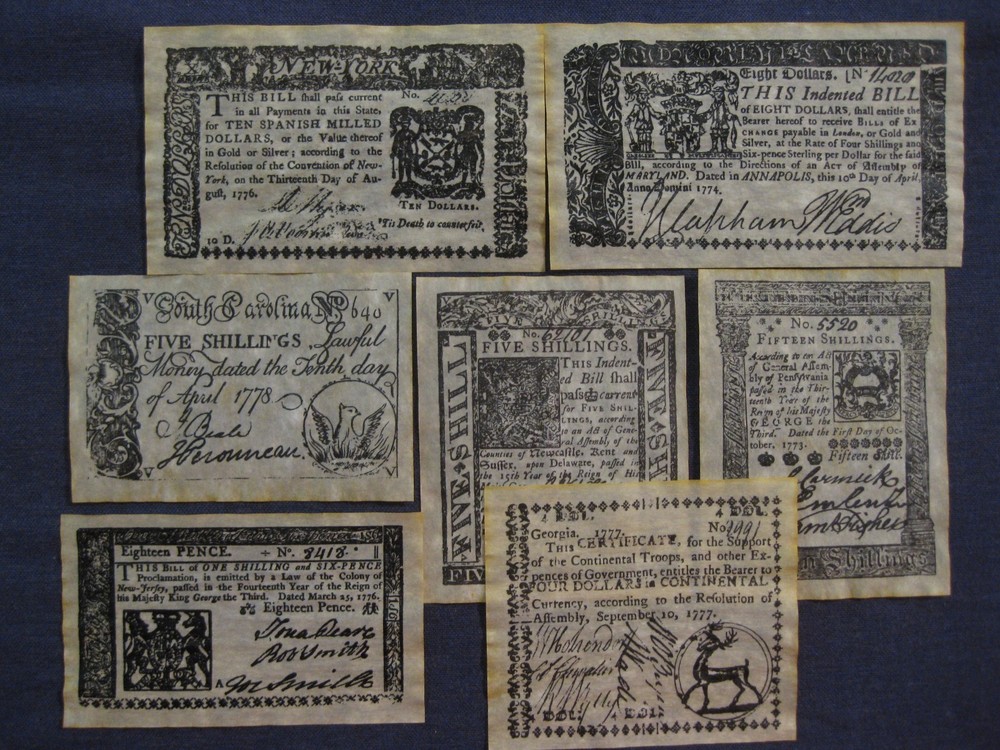 NEW-YORK
No.
THIS BILL shall pass current
in all Payments in this State,
for TEN SPANISH MILLED
DOLLARS, or the Value thereof
in Gold or Silver; according to the
Resolution of the Convention of New-
York, on the Thirteenth Day of Au-
gust, 1776.
TEN DOLLARS.
'Tis Death to counterfeit.
10 D.
Eight Dollars. [N
THIS Indented BILL
of EIGHT DOLLARS, shall entitle the
Bearer hereof to receive BILLS of EX
CHANGE payable in London, or Gold and
Silver, at the Rate of Four Shillings and
Six-pence Sterling per Dollar for the said
Bill, according to the Directions of an Act of Assembly of
MARYLAND. Dated in ANNAPOLIS, this 10th Day of April,
Anno Domini 1774.
South Carolina No 640
FIVE SHILLINGS, Lawful
Money dated the Tenth day
of April 1778
No. 69101
FIVE SHILLINGS.
THIS Indent-
ed Bill shall
pass current
for FIVE SHIL-
LINGS, according
to an Act of Gene-
ral Assembly, of the
Counties of Newcastle, Kent and
Sussex, upon Delaware, passed in
the 15th Year of the Reign of His
FIVE SHILL
FIVE SH
FIV
No. 5520
FIFTEEN SHILLINGS.
According to an Act
of General Assem-
bly of Pensylvania
passed in the Thir-
teenth Year of the
Reign of his Majesty
GEORGE the
Third. Dated the First Day of Oc-
tober, 1773.
Fifteen Shill.
Shillings
Eighteen PENCE. No. 8418
THIS BILL of ONE SHILLING and SIX-PENCE
Proclamation, is emitted by a Law of the Colony of
New-Jersey, passed in the Fourteenth Year of the Reign of
his Majesty King George the Third. Dated March 25, 1776.
Eighteen Pence.
Rob Smith
A
4 DOL. 4 DOL.
Georgia. 1777. No
THIS CERTIFICATE, for the Support
of the Continental Troops, and other Ex-
pences of Government, entitles the Bearer to
FOUR DOLLARS in CONTINENTAL
Currency, according to the Resolution of
Assembly, September 10, 1777.
4 DOL. 4 DOL.